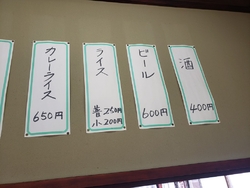 カレーライス
650円
ライス
普250円
小200円
ビール
600円
酒
400円